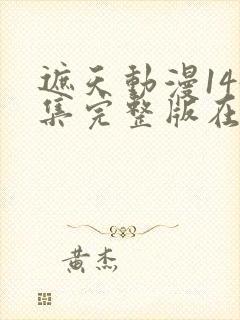 遮天動漫14
集完整版在
黄杰